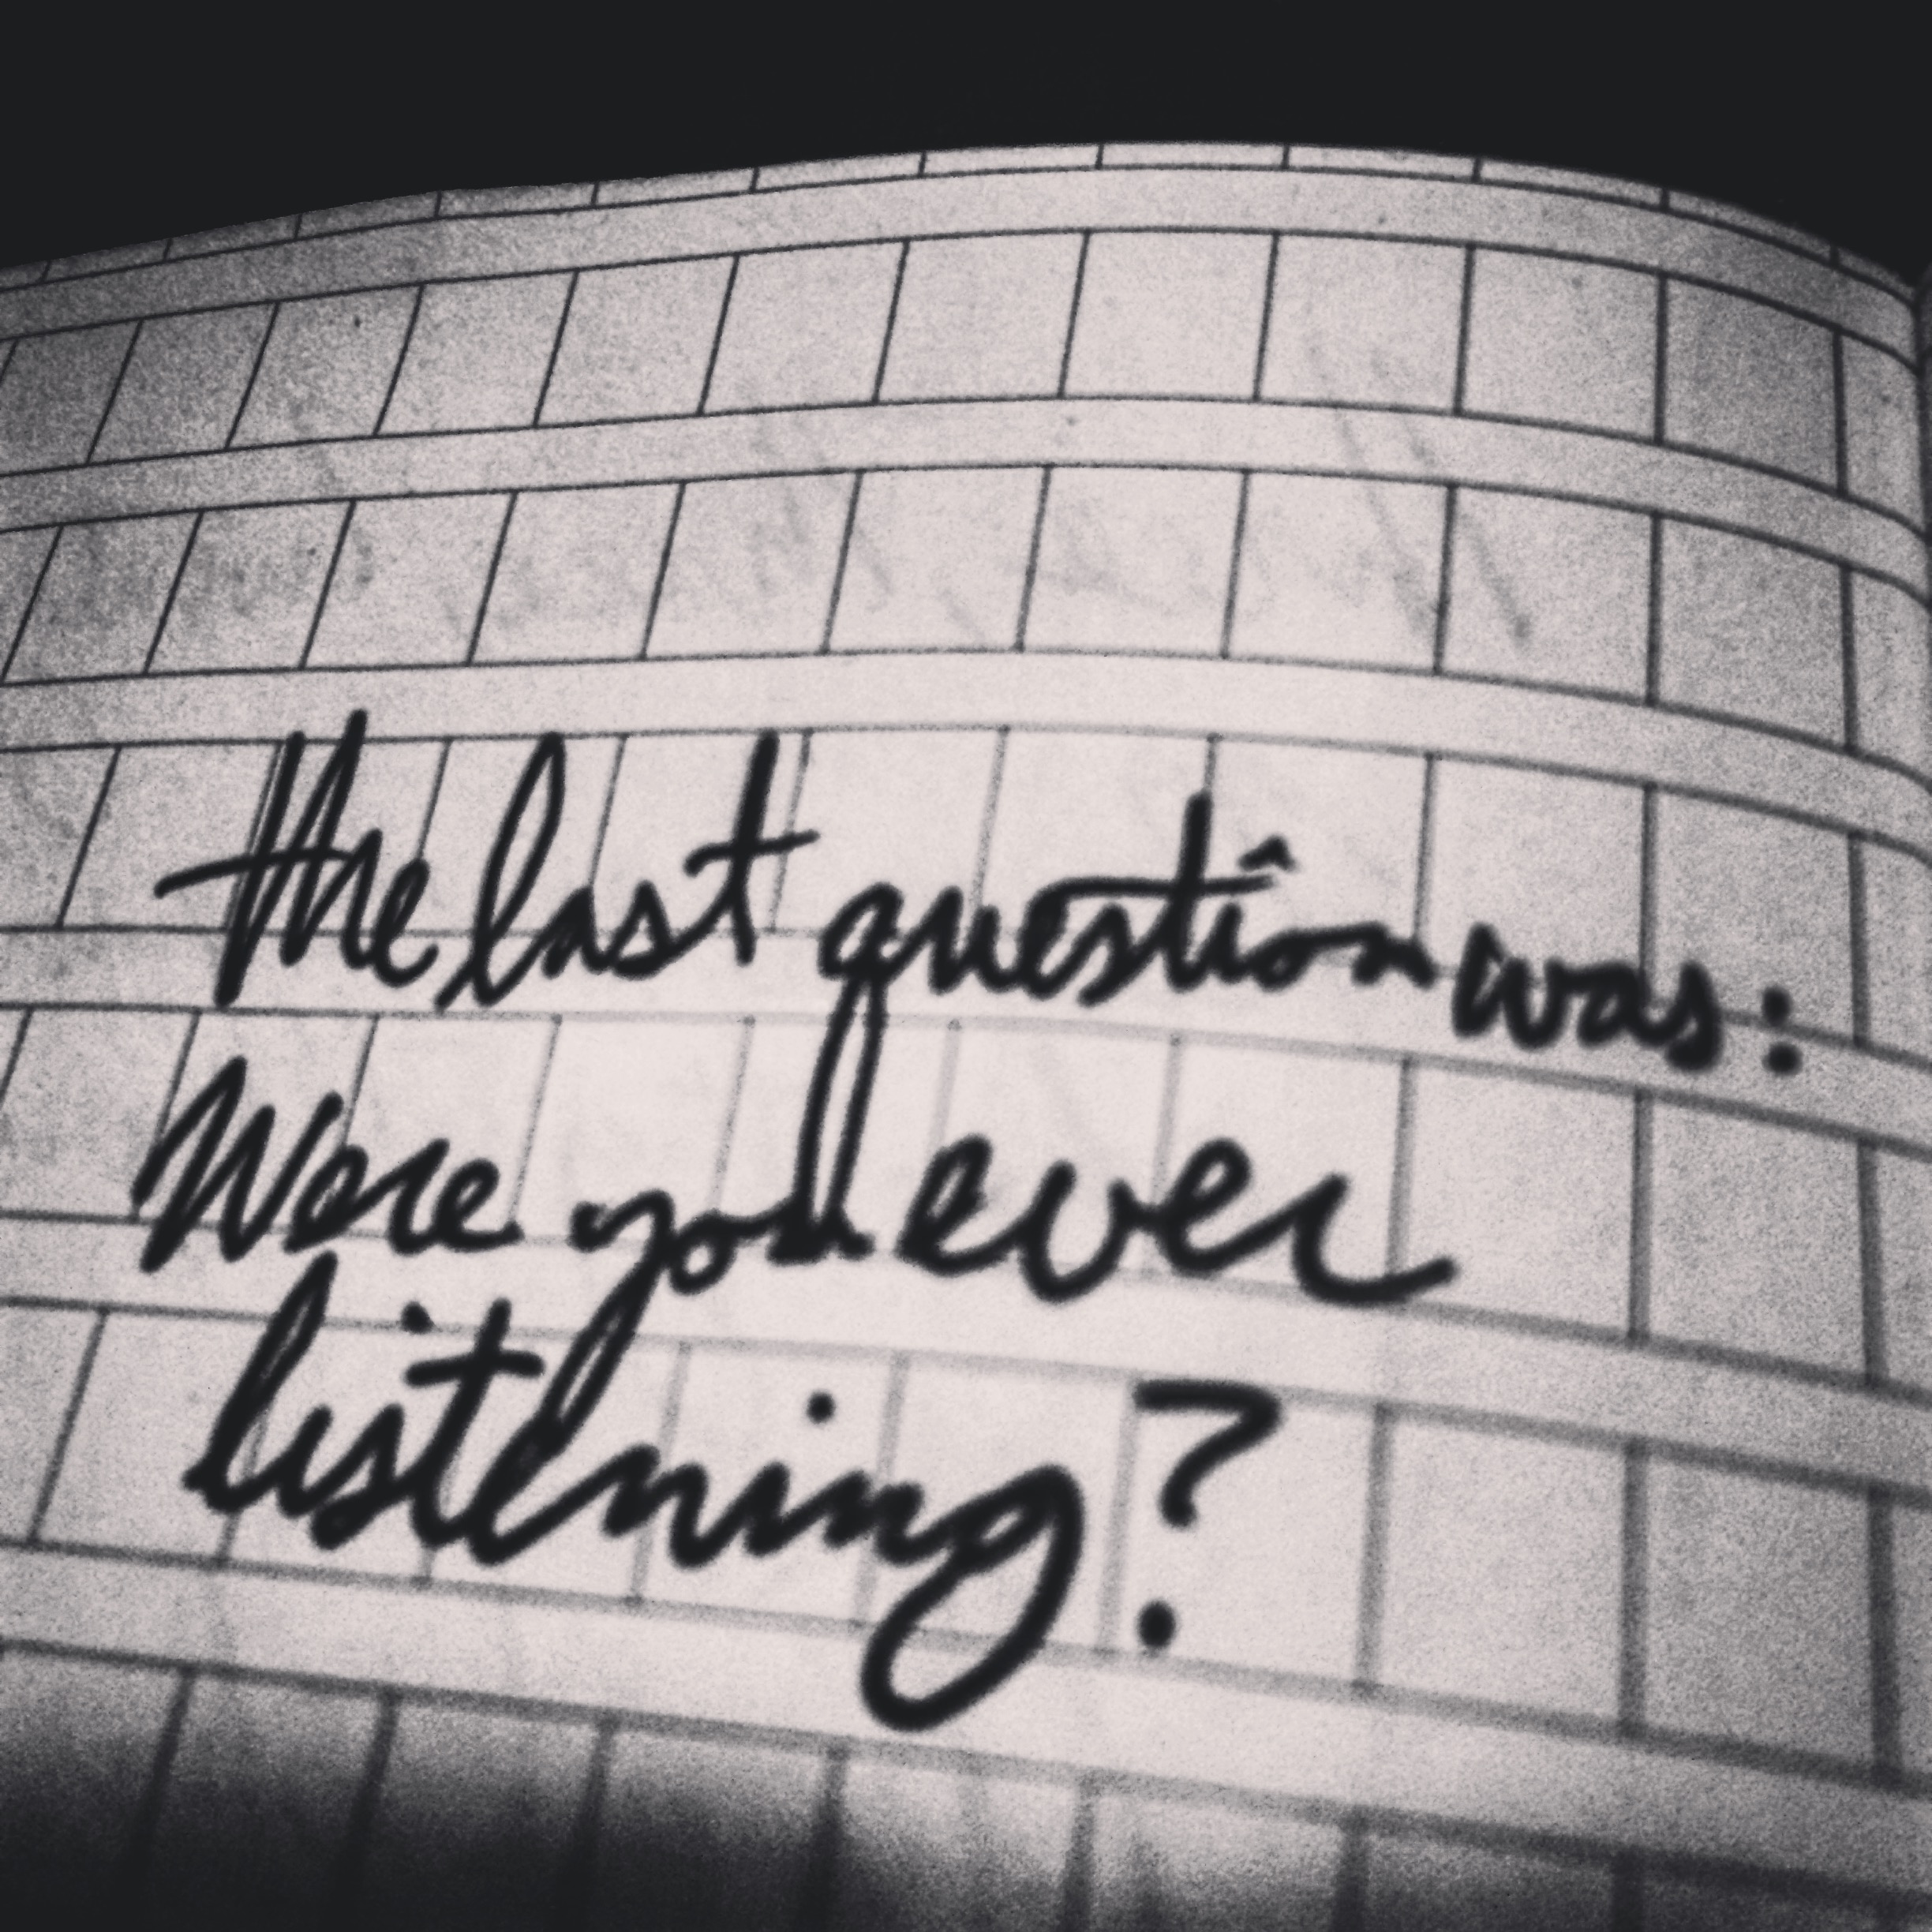 the last question was:
Were you ever
listening?